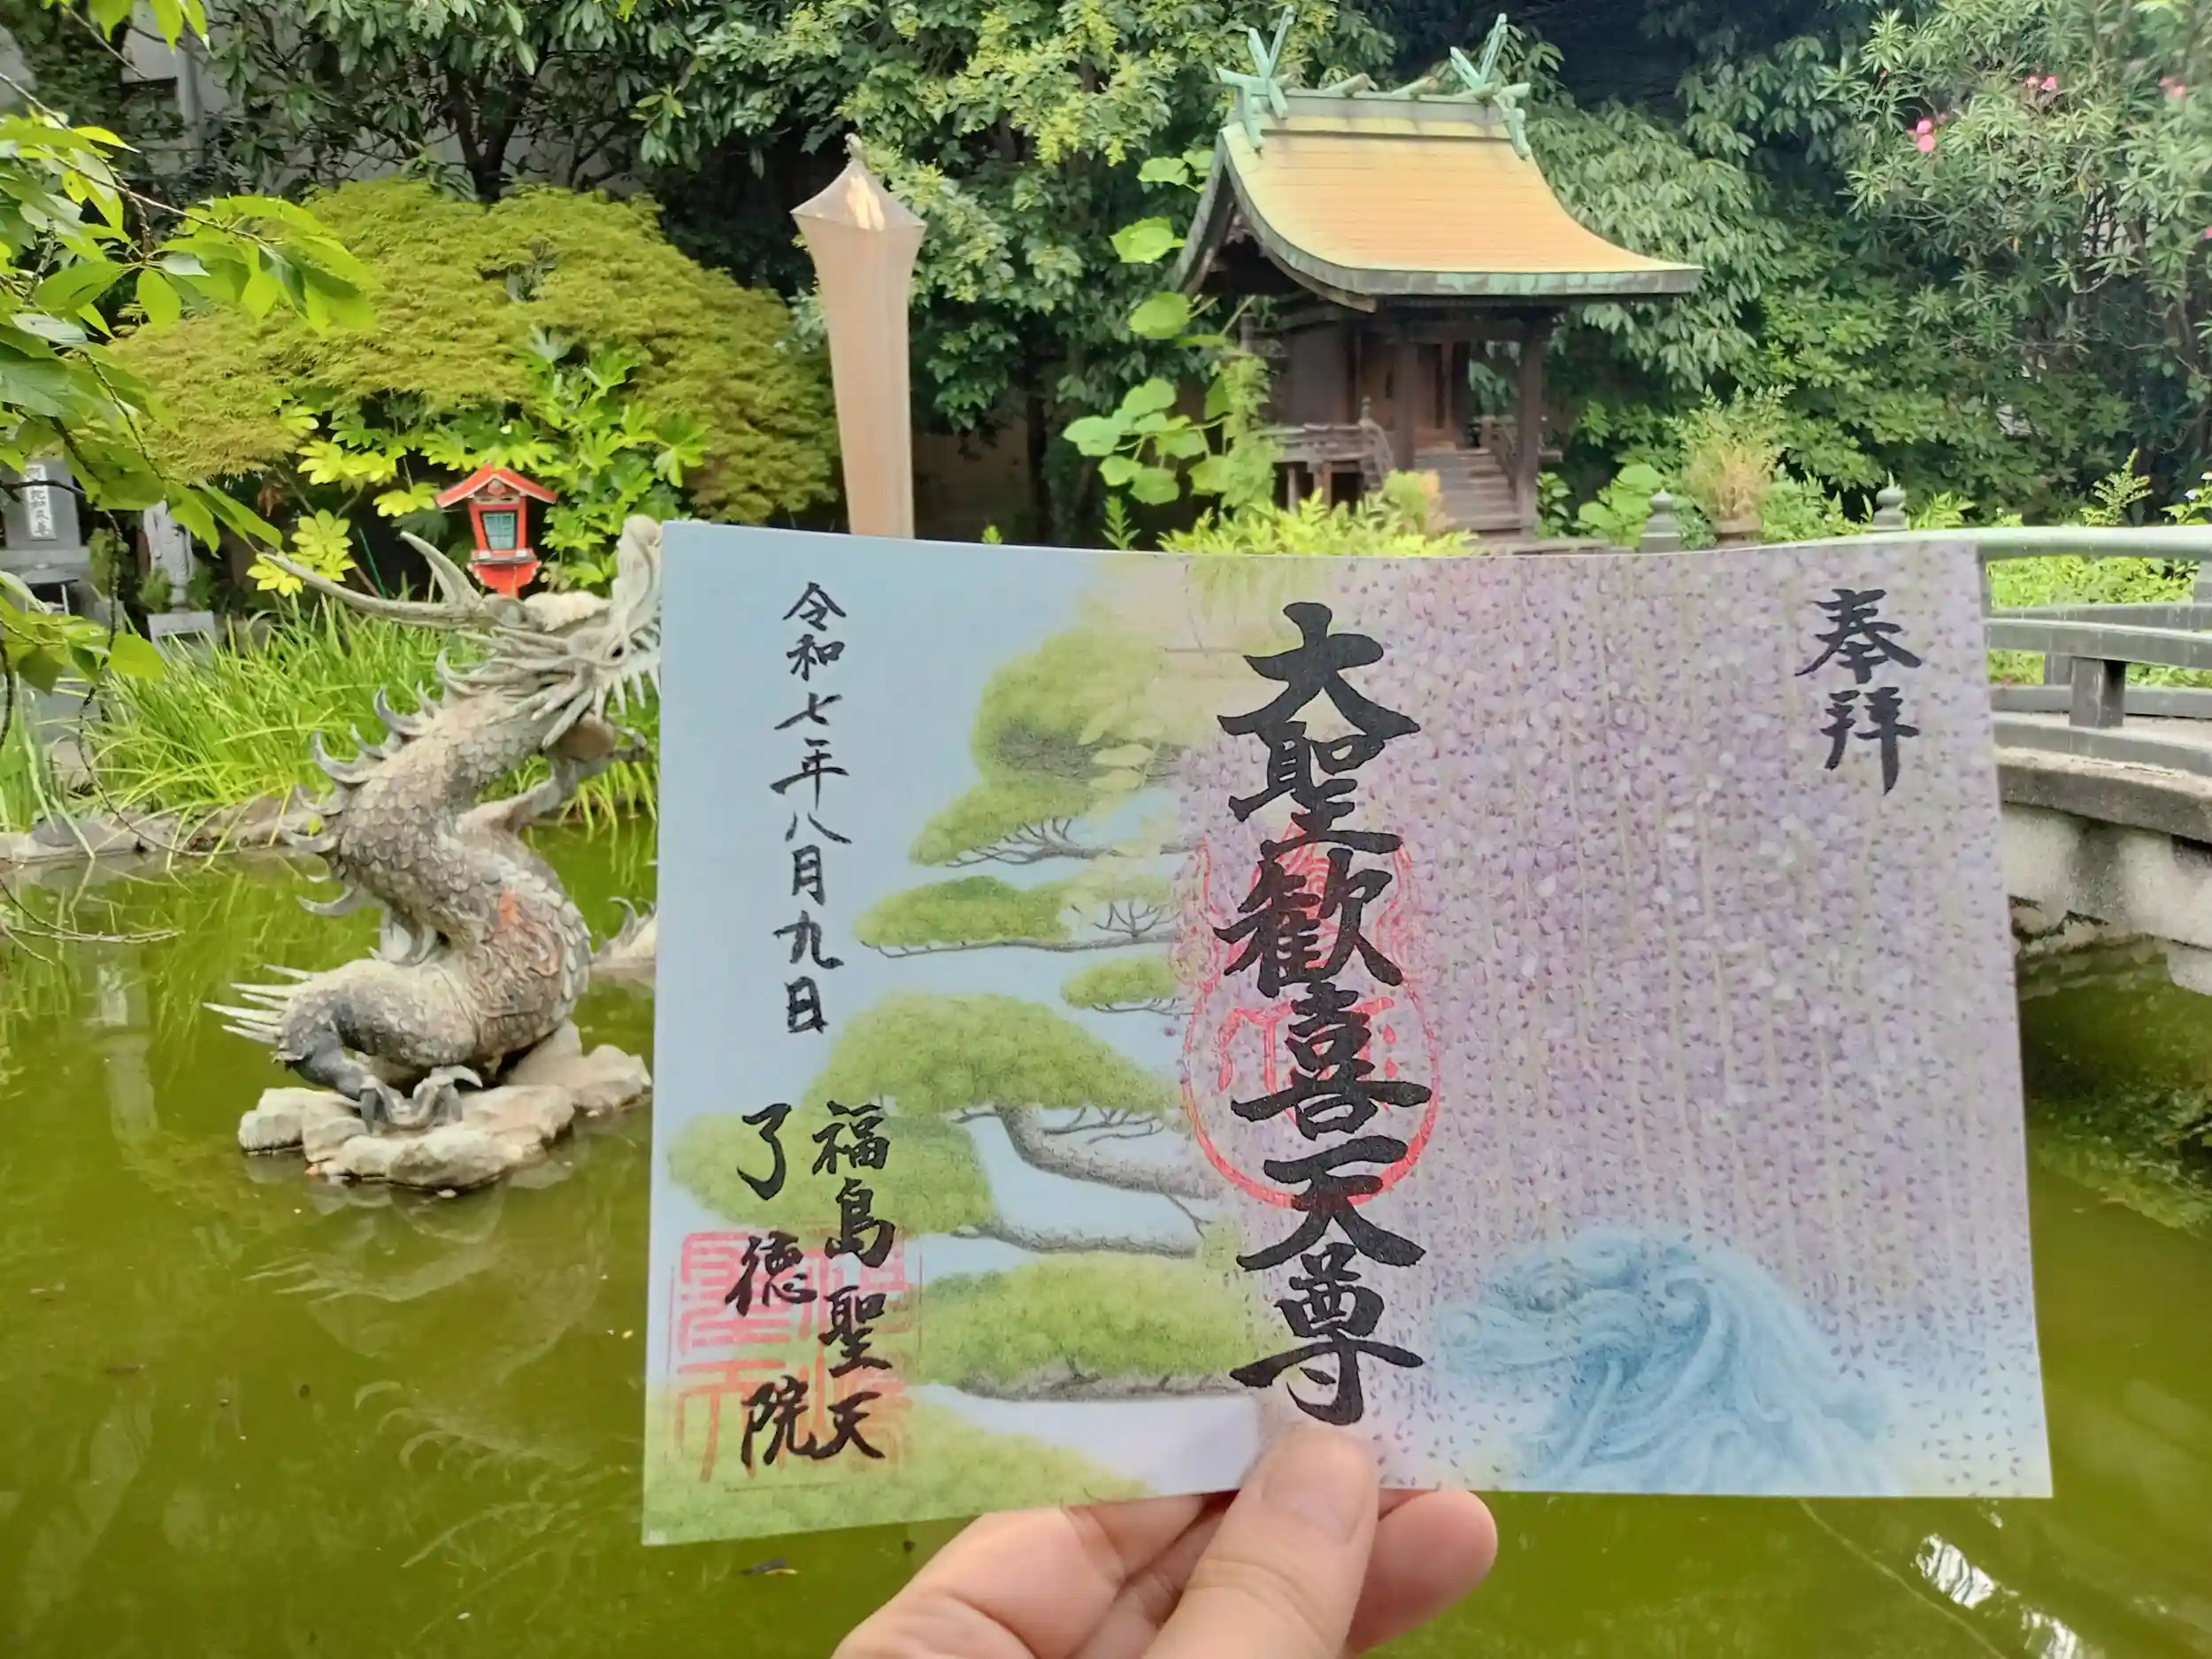 奉拝
大聖歓喜天尊
令和七年八月九日
福島聖天
了徳院